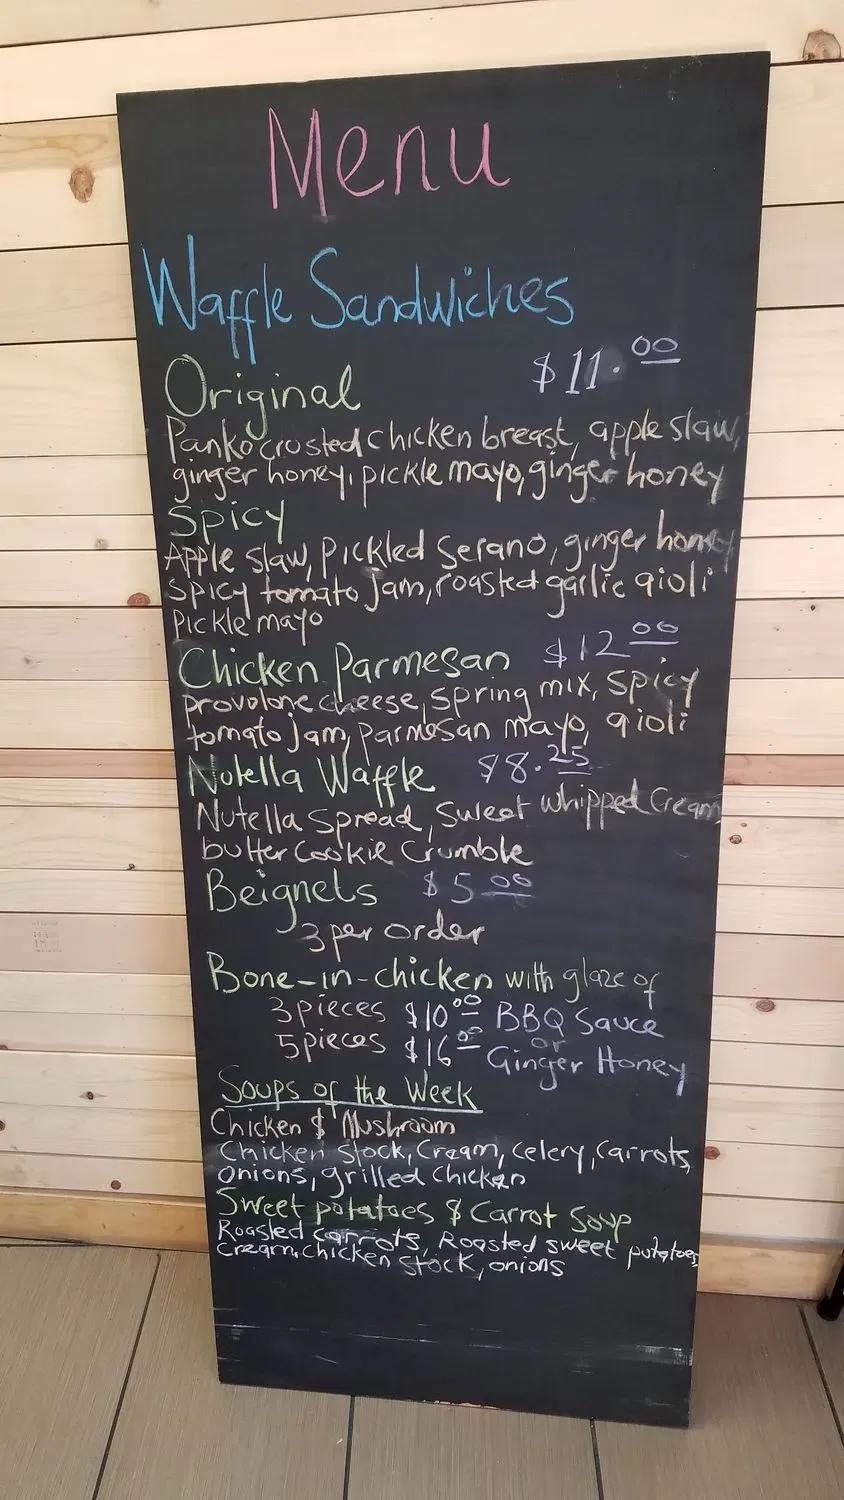 Menu
Waffle Sandwiches
Original $11.00
Panko crusted chicken breast, apple slaw,
ginger honey, pickle mayo, ginger honey
Spicy
Apple slaw, Pickled Serano, ginger honey
Spicy tomato Jam, roasted garlic aioli
Pickle mayo
Chicken Parmesan $12.00
provolone cheese, spring mix, spicy
tomato jam, Parmesan mayo, aioli
Nutella Waffle $8.25
Nutella Spread, Sweet whipped Cream
butter Cookie Crumble
Beignets $5.00
3 per order
Bone-in-chicken with glaze of
3 pieces $10.00 BBQ Sauce
or
5 pieces $16.00 Ginger Honey
Soups of the Week
Chicken & Mushroom
Chicken Stock, Cream, Celery, Carrots,
Onions, grilled Chicken
Sweet potatoes & Carrot Soup
Roasted Carrots, Roasted sweet potatoes,
Cream, chicken stock, onions